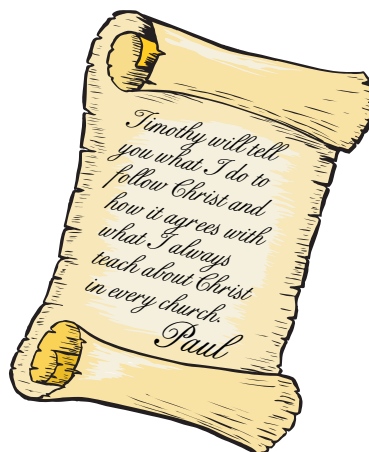 Timothy will tell
you what I do to
follow Christ and
how it agrees with
what I always
teach about Christ
in every church.
Paul